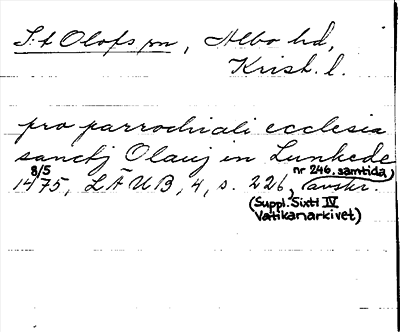 S:t Olofs sn, Albo hd,
Krist. l.
pro parrochiali ecclesia
sanctj Olauj in Lunkede
8/5 1475, LÄUB, 4, s. 226, nr 246, samtida, avskr.
(Suppl. Sixti IV
Vatikanarkivet)